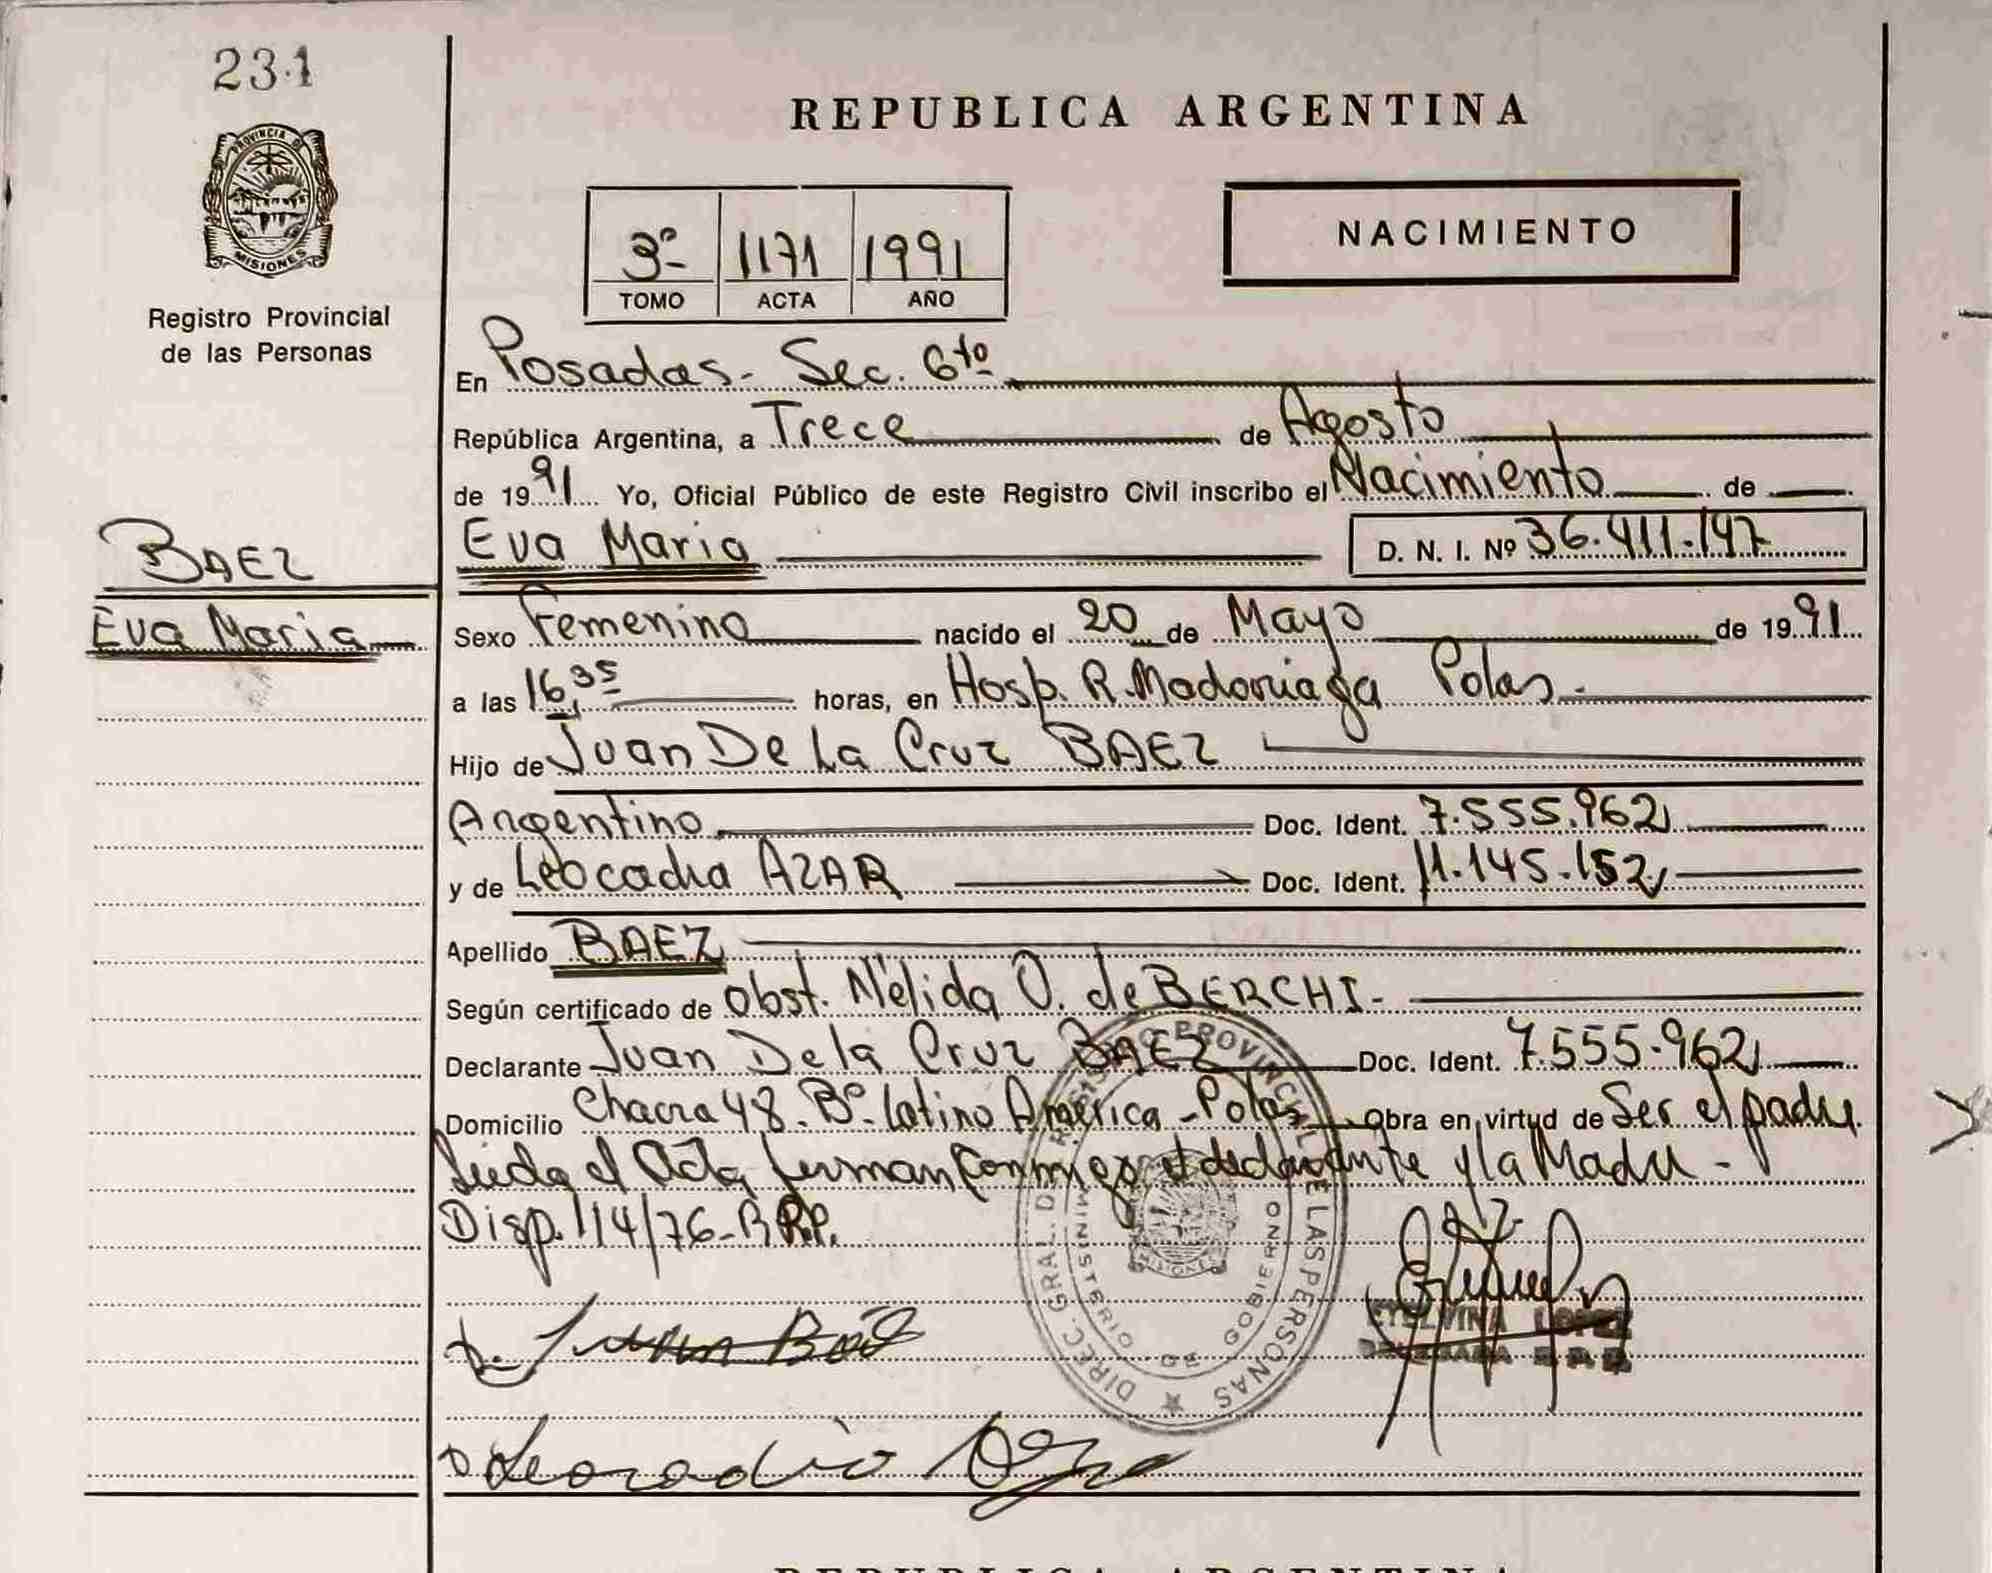 231
PROVINCIA DE
MISIONES
Registro Provincial
de las Personas
BAEZ
Eva Maria
REPUBLICA ARGENTINA
3º 1171 1991
TOMO ACTA AÑO
NACIMIENTO
En Posadas - Sec. 6to
República Argentina, a Trece de Agosto
de 1991 Yo, Oficial Público de este Registro Civil inscribo el Nacimiento de
Eva Maria D. N. I. Nº 36.411.147
Sexo Femenino nacido el 20 de Mayo de 1991
a las 16,35 horas, en Hosp. R. Madariaga Pdas.
Hijo de Juan De La Cruz BAEZ
Argentino Doc. Ident. 7.555.962
y de Leocadia AZAR Doc. Ident. 11.145.152
Apellido BAEZ
Según certificado de Obst. Nélida O. de BERCHI
Declarante Juan De la Cruz BAEZ Doc. Ident. 7.555.962
Domicilio Chacra 48 - Bº Latino América - Pdas Obra en virtud de Ser el padre
Leida el Acta firman conmigo el declarante y la Madre -
Disp. 114/76 - R.P.
DIREC. GRAL. DEL REGISTRO PROVINCIAL DE LAS PERSONAS
MINISTERIO DE GOBIERNO
MISIONES
ETELVINA LOPEZ
REPUBLICA ARGENTINA